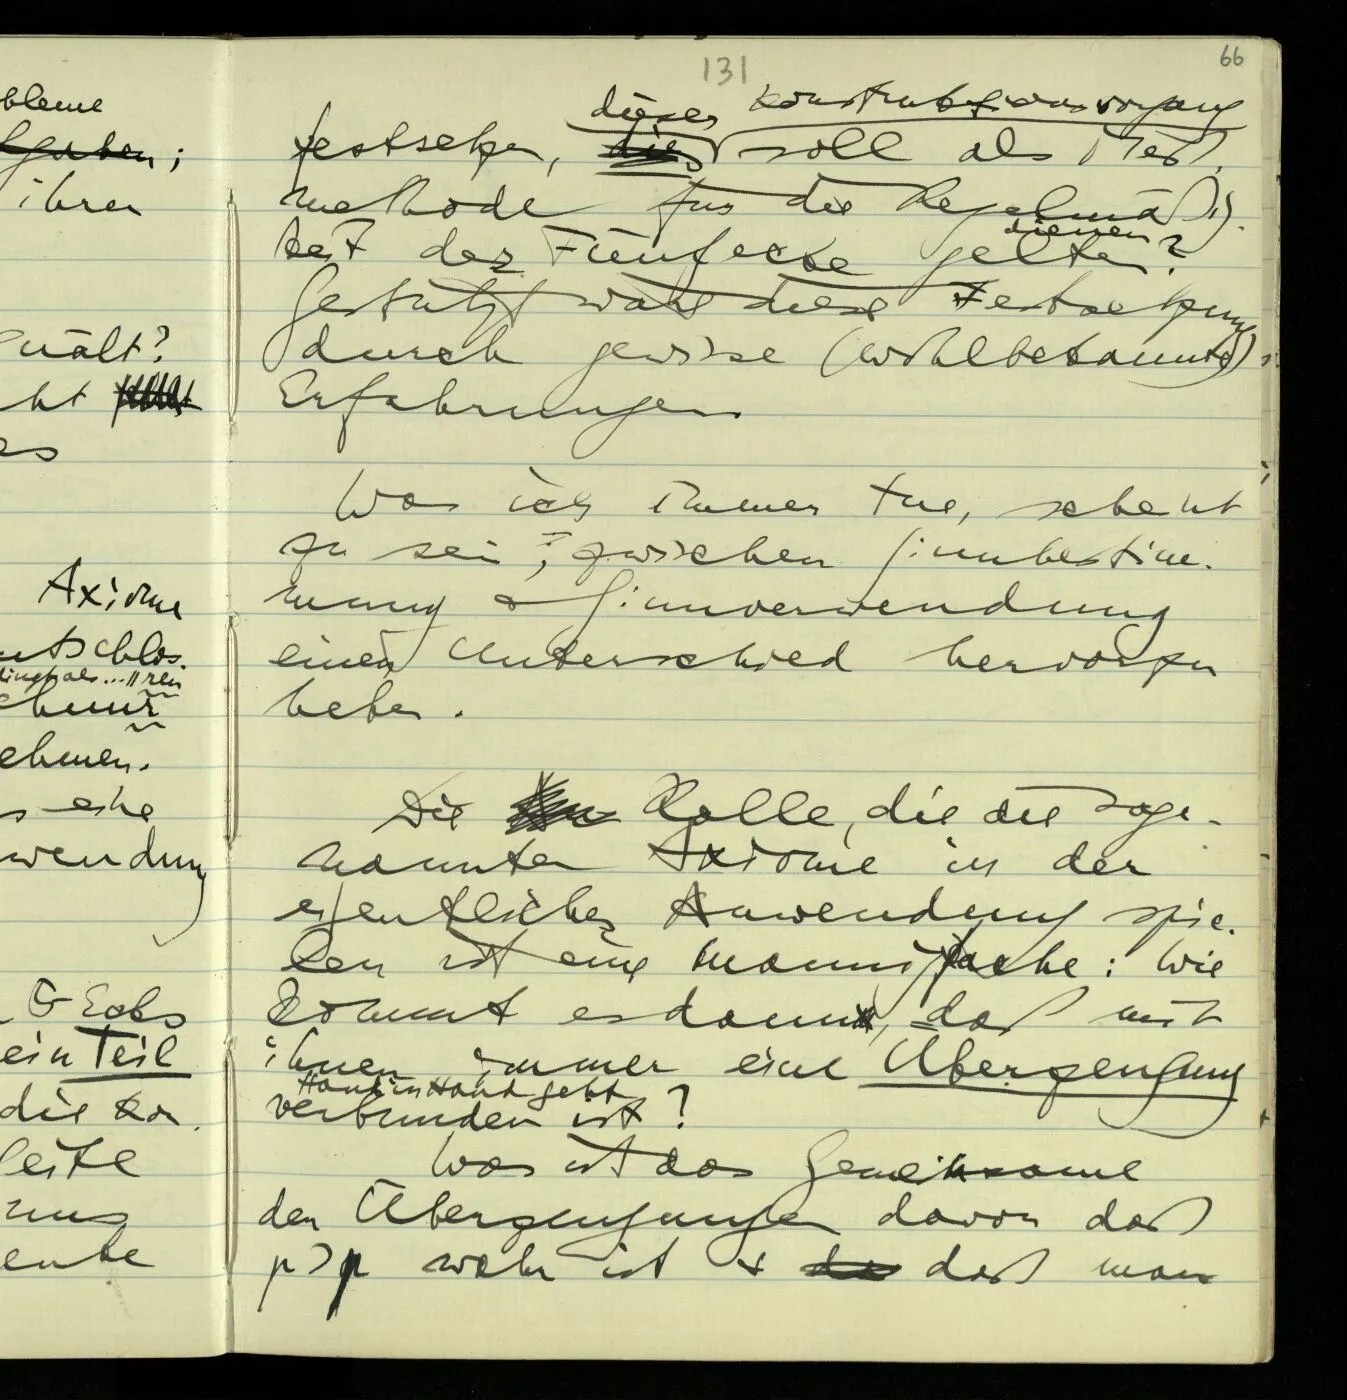 bleme
lgaben;
ihrer
quält?
ht
es
Axiome
entschlos.
dings als...ren
ehmen.
s eine
wendung
G Ecks
ein Teil
die Kon.
leite
ung
ente
131
66
dieser Konstruktionsvorgang
festsetzen, dies soll als Meß.
methode für die Regelmäßig.
dienen
keit der Fünfecke gelten?
Gestützt wäre diese Festsetzung
durch gewisse (wohlbekannte)
Erfahrungen.
Was ich immer tue, scheint
zu sein, zwischen Sinnbestim.
mung & Sinnverwendung
einen Unterschied hervorzu
heben.
Die Rolle, die die soge-
nannten Axiome in der
eigentlichen Anwendung spie.
len ist eine mannigfache: Wie
kommt es dann, daß mit
ihnen immer eine Überzeugung
Hand in Hand geht
verbunden ist?
Was ist das Gemeinsame
den Überzeugungen davon daß
p⊃p wahr ist & da daß man